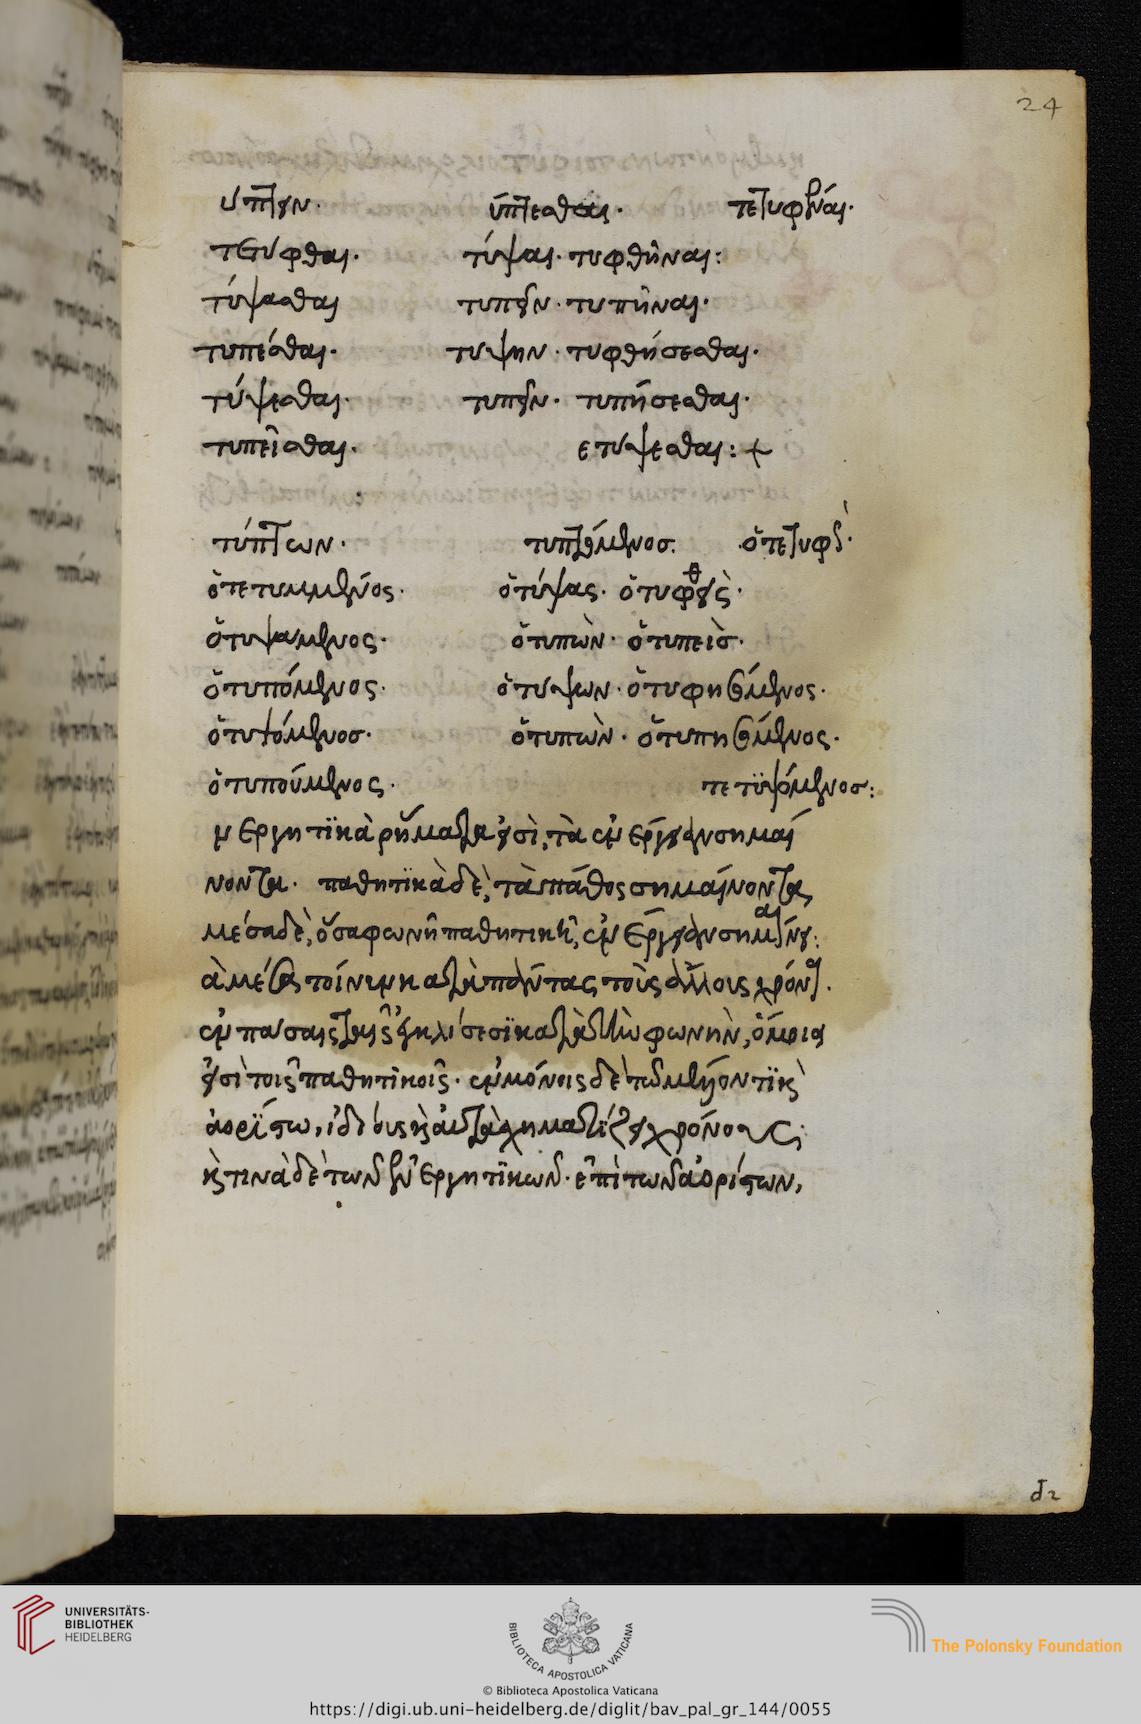 24
ύπτειν· ύπτεσθαι· τετυφέναι·
τετύφθαι· τύψαι· τυφθῆναι:
τύψασθαι τυπεῖν· τυπῆναι·
τυπέσθαι· τυψειν· τυφθήσεσθαι·
τύψεσθαι· τυπεῖν· τυπήσεσθαι·
τυπεῖσθαι· ετυψεσθαι:
τύπτων· τυπτόμενοσ· ὁ τετυφὼς·
ὁ τετυμμένος· ὁ τύψας· ὁ τυφθεὶς·
ὁ τυψαμενος· ὁ τυπὼν· ὁ τυπεὶσ·
ὁ τυπόμενος· ὁ τυψων· ὁ τυφησόμενος·
ὁ τυψόμενοσ· ὁ τυπὼν· ὁ τυπησόμενος·
ὁ τυπούμενος· τετϋψόμενοσ:
εργητϊκὰ ρήματα εἰσὶ, τὰ ἐνέργειαν σημαί
νοντα· παθητϊκὰ δὲ, τὰ πάθος σημαίνοντα,
μέσα δὲ, ὅσα φωνῆ παθητικῆ, ἐνέργειαν σημαίνει:
ὰ μέσα τοίνυν κατὰ πάντας τοὺς ἄλλους χρόνους·
ἐν πάσαις ταῖς ἐγκλίσεσϊ κατὰ τὴν φωνὴν, ὅμοια
εἰσὶ τοῖς παθητικοῖς· ἐν μόνοις δὲ τῶ μέλλοντϊ κὰι
ἀορίστω, ἰδίοις κὰι αὐτὰ σχηματίζει χρόνους
κὰι τινὰ δὲ τῶν ἐνεργητικῶν· ἐπὶ τῶν ἀορίστων,
d2
UNIVERSITÄTS-
BIBLIOTHEK
HEIDELBERG
BIBLIOTECA APOSTOLICA VATICANA
The Polonsky Foundation
© Biblioteca Apostolica Vaticana
https://digi.ub.uni-heidelberg.de/diglit/bav_pal_gr_144/0055